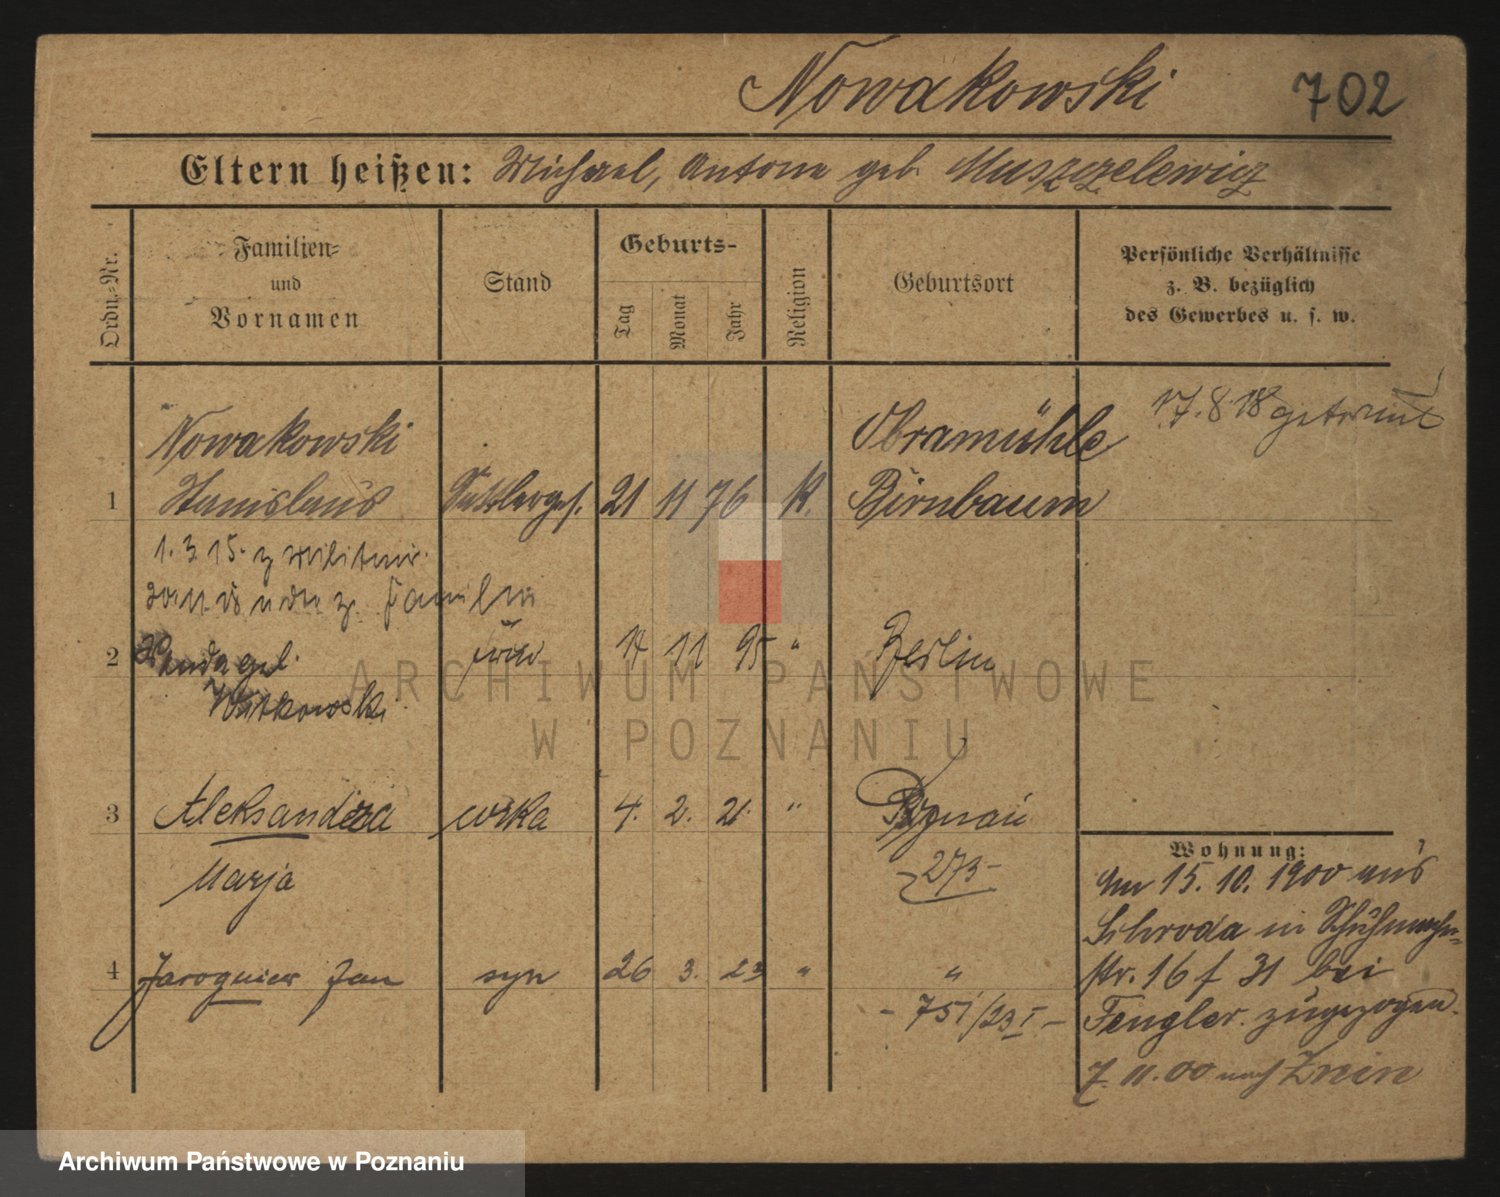 Nowakowski 702
Eltern heißen: Michael, Antonie geb. Muszczelewicz
Ordn.-Nr.
Familien-
und
Vornamen
Stand
Geburts-
Tag
Monat
Jahr
Religion
Geburtsort
Persönliche Verhältnisse
z. B. bezüglich
des Gewerbes u. s. w.
17.8.18 getrennt
Nowakowski Obramühle
1 Stanislaus Sattlerges. 21 11 76 K. Birnbaum
1.3.15. z Militär
z. Familie
2 Wanda geb. 17 11 95 " Berlin
Witkowski
3 Aleksandra córka 4. 2. 21. " Poznań
Marja 273-
4 Jarogniew Jan syn 26 3. 23 " "
- 751/23 I -
Wohnung:
Am 15. 10. 1900 aus
Schroda in Schuhmacher-
str. 16 f 31 bei
Fengler. zugezogen.
7. 11. 00 nach Znin
ARCHIWUM PAŃSTWOWE
W POZNANIU
Archiwum Państwowe w Poznaniu